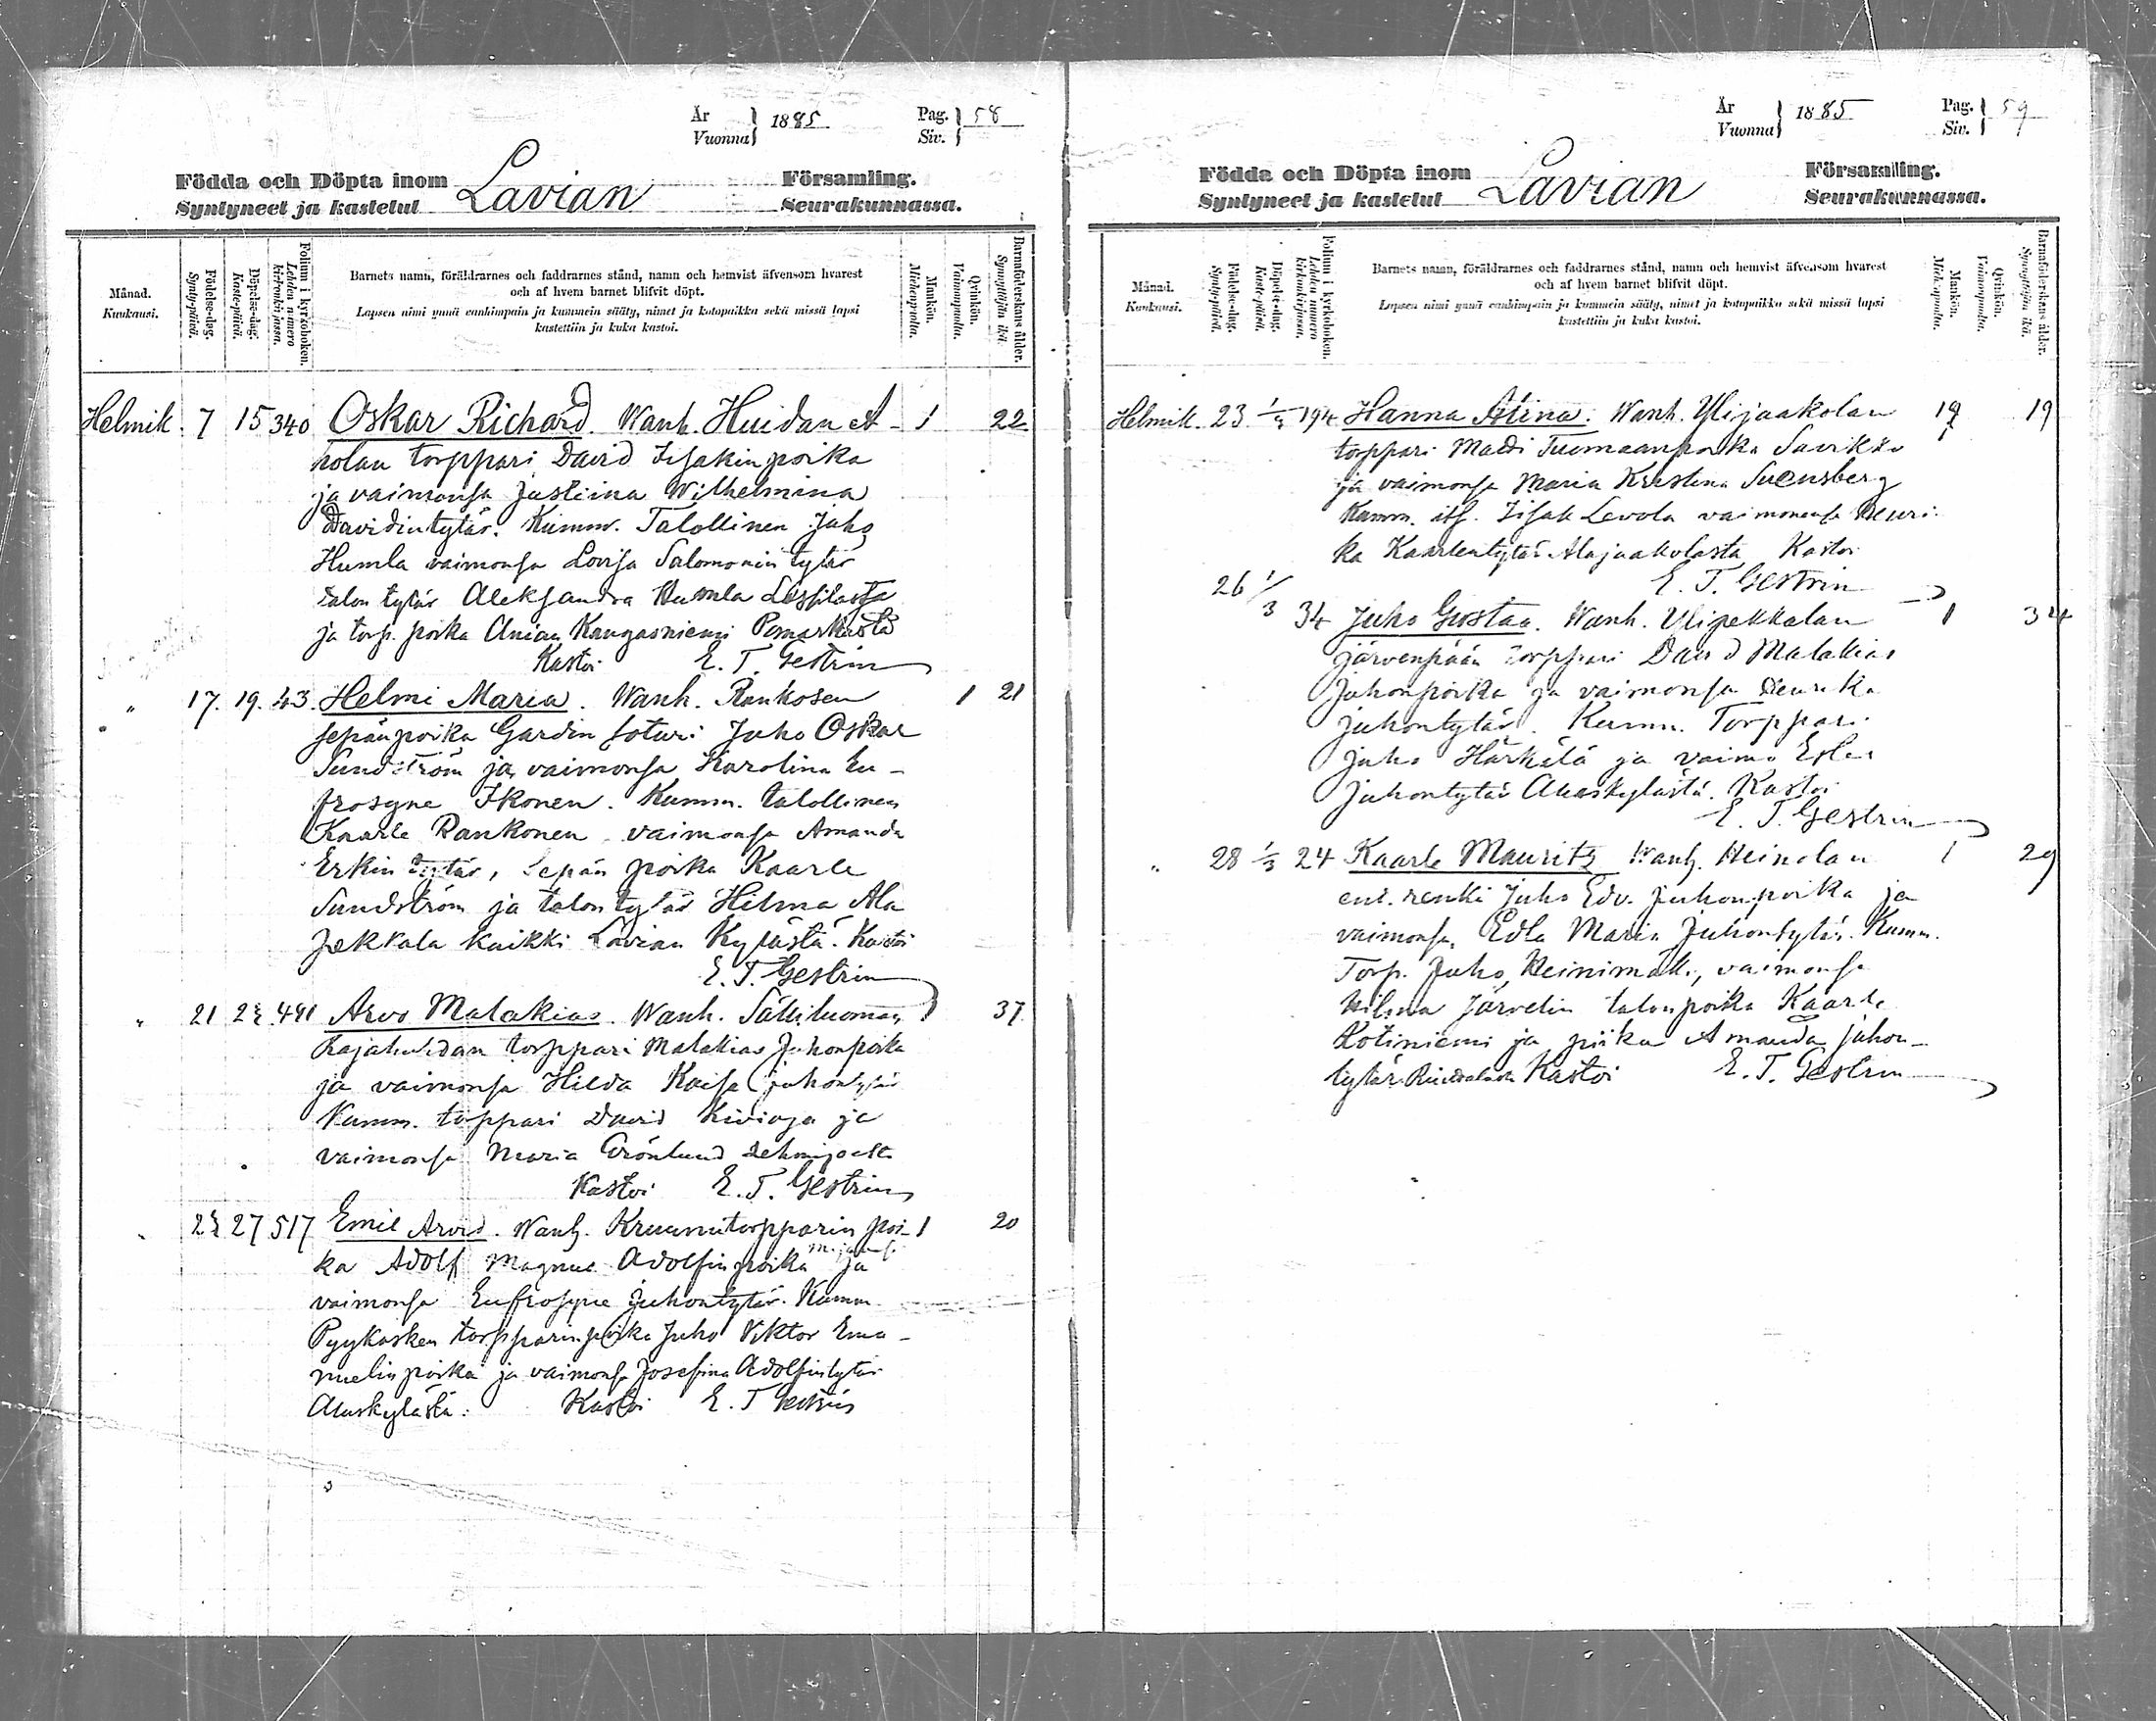 År
Vuonna 1885 Pag. Siv. 58
Födda och Döpta inom Lavian Församling.
Syntyneet ja kastetut Seurakunnassa.
Månad. Kuukausi.
Födelse-dag. Synty-päivä.
Döpelse-dag. Kaste-päivä.
Folium i kyrkoboken. Lehden numero kirkonkirjassa.
Barnets namn, föräldrarnes och faddrarnes stånd, namn och hemvist äfvensom hvarest
och af hvem barnet blifvit döpt.
Lapsen nimi ynnä vanhimpain ja kummein sääty, nimet ja kotopaikka sekä missä lapsi
kastettiin ja kuka kastoi.
Mankön. Miehenpuolta.
Qvinkön. Vaimonpuolta.
Barnaföderskans ålder. Synnyttäjän ikä.
Helmik. 7 15 340 Oskar Richard. Wanh. Huidan A- 1 22
holan torppari David Iisakinpoika
ja vaimonsa Justiina Wilhelmina
Davidintytär. Kumm. Talollinen Juho
Humla vaimonsa Lovisa Salomonintytär
talon tytär Aleksandra Humla
ja torp. poika Kangasniemi
Kastoi E. T. Gestrin
" 17. 19. 43. Helmi Maria. Wanh. Rankosen 1 21
sepänpoika Gardin soturi Juho Oskar
Sundström ja vaimonsa Karolina Eu-
frosyne Ikonen. Kumm. talollinen
Kaarle Rankonen vaimonsa Amanda
Erkintytär, Sepän poika Kaarle
Sundström ja talon tytär Hilma Ala
Pekkala kaikki Lavian Kylästä. Kastoi
E. T. Gestrin
" 21 Arvo Malakias. Wanh. 1 37
torppari Malakias Juhonpoika
ja vaimonsa Hilda Kaisa Juhontytär
Kumm. torppari David Kivioja ja
vaimonsa Maria Grönlund
Kastoi E. T. Gestrin
27 517 Emil Arvid. Wanh. Kruununtorpparin poi- 1 20
ka Adolf Magnus Adolfinpoika ja
vaimonsa Eufrosyne Juhontytär. Kumm.
Pyykosken torpparinpoika Juho Viktor Ema-
nuelinpoika ja vaimonsa Josefina Adolfintytär
Aluskylästä. Kastoi E. T. Gestrin
År
Vuonna 1885 Pag. Siv. 59
Födda och Döpta inom Lavian Församling.
Syntyneet ja kastetut Seurakunnassa.
Månad. Kuukausi.
Födelse-dag. Synty-päivä.
Döpelse-dag. Kaste-päivä.
Folium i kyrkoboken. Lehden numero kirkonkirjassa.
Barnets namn, föräldrarnes och faddrarnes stånd, namn och hemvist äfvensom hvarest
och af hvem barnet blifvit döpt.
Lapsen nimi ynnä vanhimpain ja kummein sääty, nimet ja kotopaikka sekä missä lapsi
kastettiin ja kuka kastoi.
Mankön. Miehenpuolta.
Qvinkön. Vaimonpuolta.
Barnaföderskans ålder. Synnyttäjän ikä.
Helmik. 23 1/3 194 Hanna Wanh. Ylijaakolan 19
torppari Matti Tuomaanpoika
ja vaimonsa Maria Kristina Svensberg
Kumm. its. Iisak Levola vaimonensa Henri-
ka Kaarlentytär Alajaakolasta Kastoi
E. T. Gestrin
26 1/3 34 Juho Gustaa. Wanh. Ylipekkalan 1 34
järvenpään torppari David Malakias
Juhonpoika ja vaimonsa Henrika
Juhontytär. Kumm. Torppari
Juho Härkälä ja vaimo
Juhontytär Aluskylästä. Kastoi
E. T. Gestrin
" 28 1/3 24 Kaarle Mauritz Wanh. Heinolan 1 29
ent. renki Juho Edv. Juhonpoika ja
vaimonsa Edla Maria Juhontytär. Kumm.
Torp. Juho Heinimäki, vaimonsa
Hilma Järvelin talonpoika Kaarle
Kotiniemi ja piika Amanda Juhon-
tytär Kastoi E. T. Gestrin